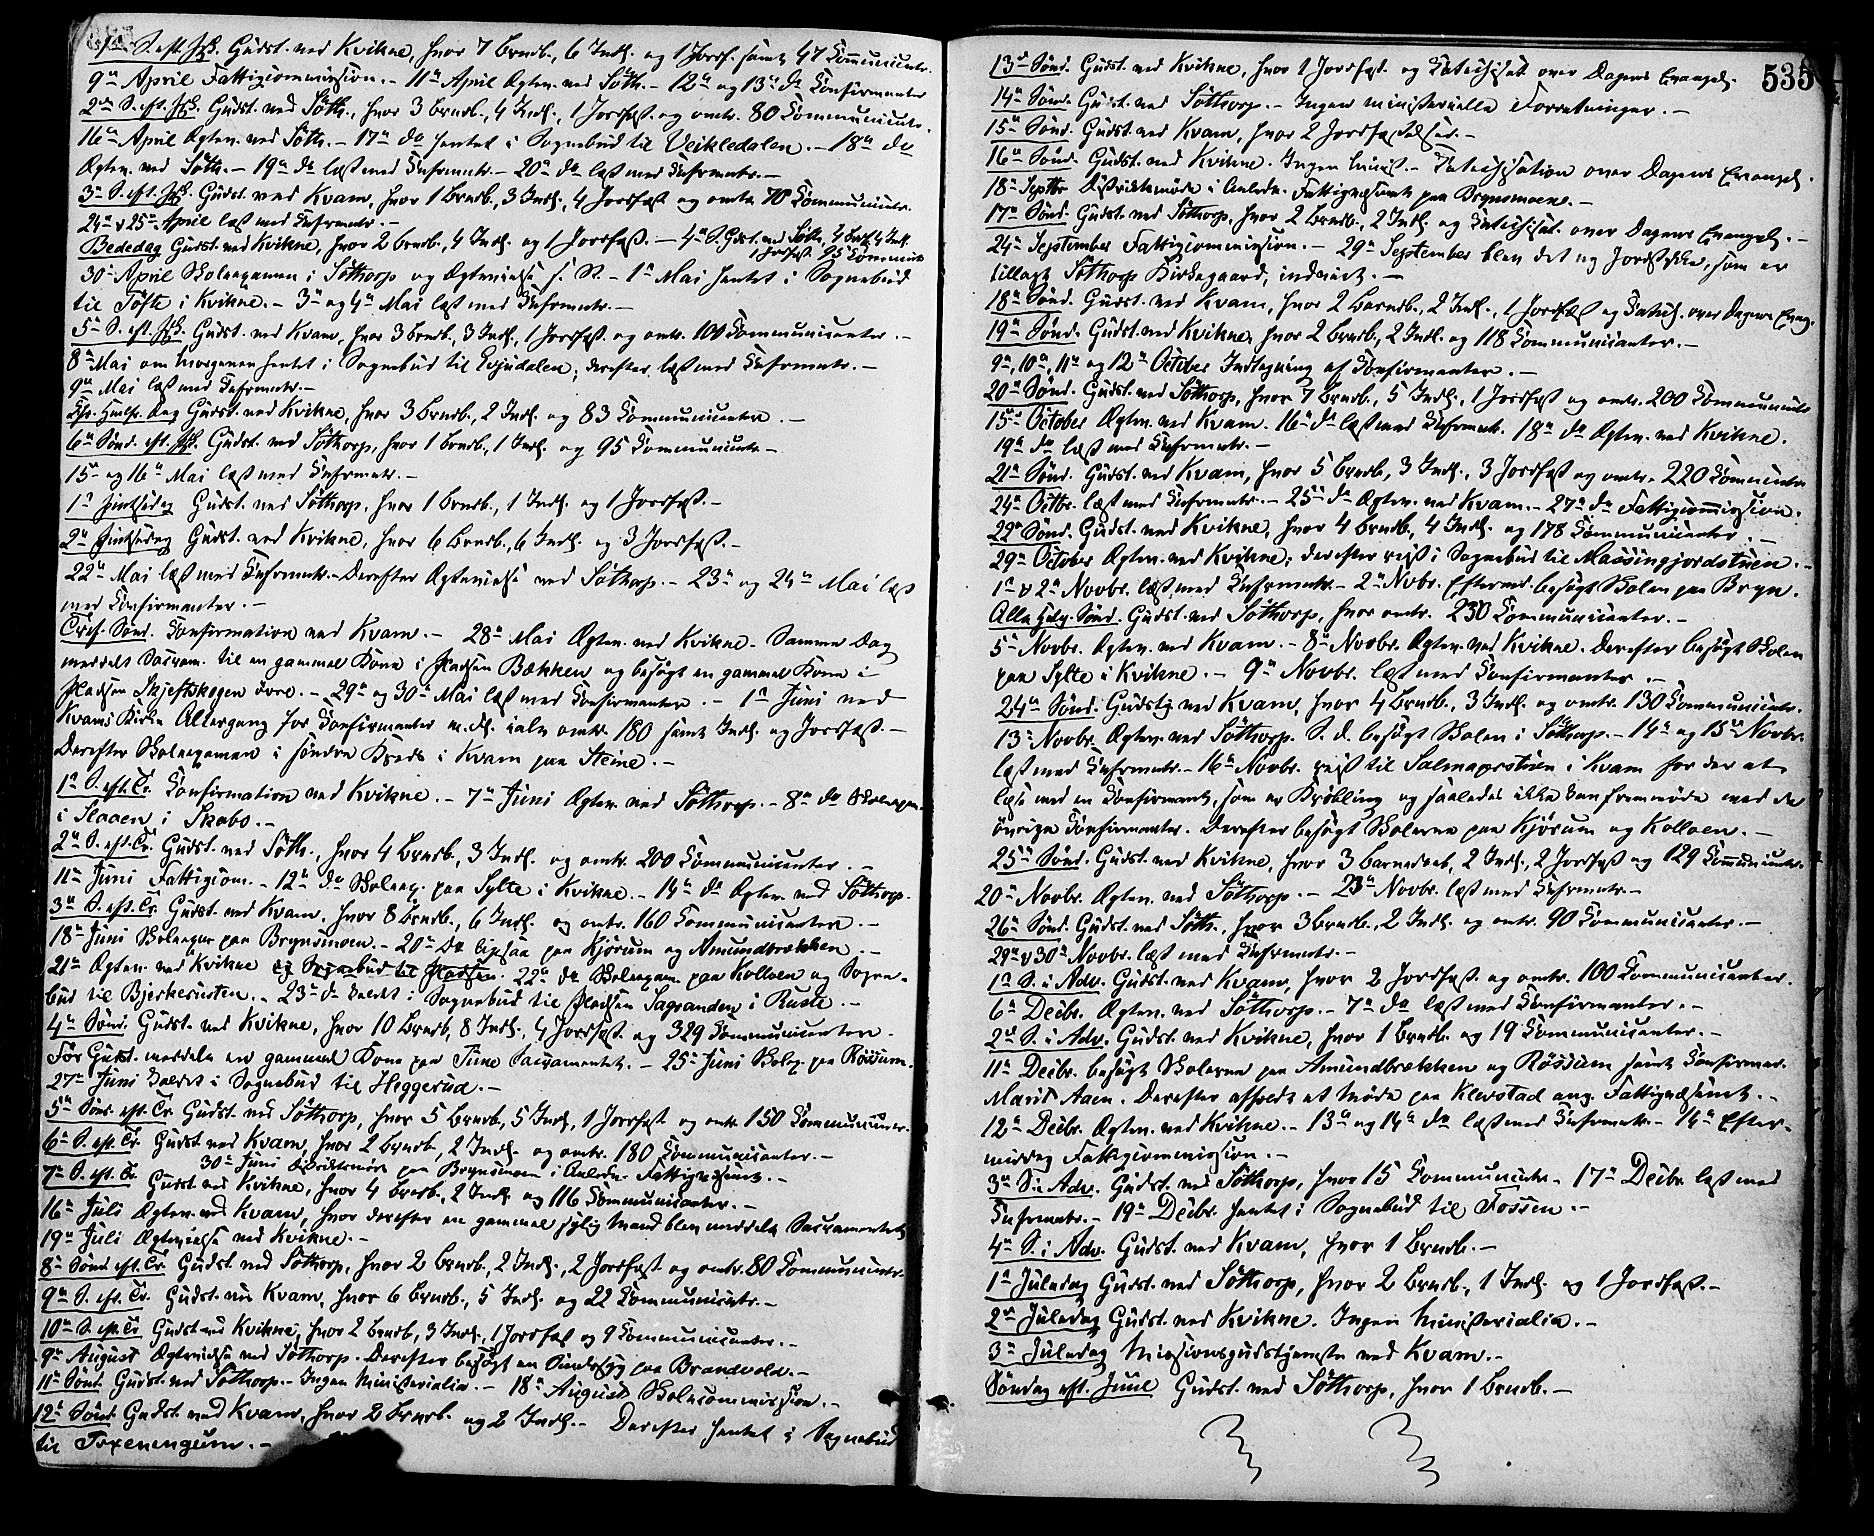 1ste S. eft. Psk. Gudst. ved Kvikne, hvor 7 Brndb., 6 Indl. og 1 Jordf. samt 47 Communicntr.
9de April Fattigcommission. - 11te April Ægtev. ved Söth. - 12te og 13de do Confirmanter
2den S. eft. Psk. Gudst. ved Söth., hvor 3 Brndb., 4 Indl., 1 Jordfæst. og omtr. 80 Communicntr.
16de April Ægtev. ved Söth. - 17de do hentet i Sognebud til Veikledalen. - 18de do
Ægtev. ved Söth. - 19de do læst med Cnfrmntr. - 20de do læst med Cnfrmntr. -
3die S. eft. Psk. Gudst. ved Kvam, hvor 1 Brndb., 3 Indl., 4 Jordfæst. og omtr. 70 Communicntr.
24de & 25de April læst med Cnfrmntr. -
Bededag Gudst. ved Kvikne, hvor 2 Brndb., 4 Indl. og 1 Jordfæst. - 4de S. Gdst. ved Söth, 4 Brdb, 4 Indl.
1 Jordfæst. 95 Commun.
30te April Skoleexamen i Söthorp og Ægtevielse s. St. - 1ste Mai hentet i Sognebud
til Tofte i Kvikne. - 3die og 4de Mai læst med Cnfrmntr. -
5te S. eft. Psk. Gudst. ved Kvam, hvor 3 Brndb., 3 Indl., 1 Jordfæst. og omtr. 100 Communicanter. -
8de Mai om Morgenen hentet i Sognebud til Espedalen; derefter læst med Cnfrmntr. -
9de Mai læst med Cnfrmntr. -
Chr. Himlf. Dag Gudst. ved Kvikne, hvor 3 Brndb., 2 Indl. og 83 Communicanter. -
6te Sönd. eft. Psk. Gudst. ved Söthorp, hvor 1 Brndb., 1 Indl. og 95 Communicntr. -
15de og 16de Mai læst med Cnfrmntr. -
1ste Pintsedag Gudst. ved Söthorp, hvor 1 Brndb., 1 Indl. og 1 Jordfæst. -
2den Pintsedag Gudst. ved Kvikne, hvor 6 Brndb., 6 Indl. og 3 Jordfæst. -
22de Mai læst med Cnfrmntr. - Derefter Ægtevielse ved Söthorp. - 23de og 24de Mai læst
med Confirmanter. -
Tref. Sönd. Confirmation ved Kvam. - 28de Mai Ægtev. ved Kvikne. Samme Dag
meddelt Sacram. til en gammel Kone i Pladsen Bækken og besögt en gammel Kone i
Pladsen Skjeftskogen övre. - 29de og 30te Mai læst med Confirmanter. - 1ste Juni ved
Kvams Kirke Altergang for Confirmanter m. fl. ialt omtr. 180 samt Indl. og Jordfæst. -
Derefter Skoleexamen i söndre Kreds i Kvam paa Steine. -
1ste S. eft. Tr. Confirmation ved Kvikne. - 7de Juni Ægtev. ved Söthorp. - 8de do Skoleexam.
i Slaaen i Skabo. -
2den S. eft. Tr. Gudst. ved Söth., hvor 4 Brndb., 3 Indl. og omtr. 200 Communicanter. -
11te Juni Fattigcom. - 12te do Skoleex. paa Sylte i Kvikne. - 14de do Ægtev. ved Söthorp.
3die S. eft. Tr. Gudst. ved Kvam, hvor 8 Brndb., 6 Indl. og omtr. 160 Communicanter. -
18de Juni Skoleexam paa Brynsmoen. - 20de do ligesaa paa Kjörum og Amundbrækken. -
21de Ægtev. ved Kvikne og Sognebud til Pladsen. 22de do Skoleexam. paa Kolloen og Sogne-
bud til Bjerkerusten. - 23de do kaldet i Sognebud til Pladsen Sagranden i Ruste. -
4de Sönd. Gudst. ved Kvikne, hvor 10 Brndb., 8 Indl., 4 Jordfæst. og 329 Communicanter.
Før Gudst. meddelt en gammel Kone paa Tune Sacramentet. - 25de Juni Skoleex. paa Rössum.
27de Juni kaldet i Sognebud til Heggerud. -
5te Sönd. eft. Tr. Gudst. ved Söthorp, hvor 5 Brndb., 5 Indl., 1 Jordfæst. og omtr. 150 Communicntr.
6te S. eft. Tr. Gudst. ved Kvam, hvor 2 Brndb., 2 Indl. og omtr. 180 Communicanter. -
30te Juni Districtsmöde paa Brynsmoen i Anledn. Fattigvæsenet. -
7de S. eft. Tr. Gudst. ved Kvikne, hvor 4 Brndb., 2 Indl. og 116 Communicanter. -
16de Juli Ægtev. ved Kvam, hvor derefter en gammel sygelig Mand blev meddelt Sacramentet
19de Juli Ægtevielse ved Kvikne. -
8de Sönd. eft. Tr. Gudst. ved Söthorp, hvor 2 Brndb., 2 Indl., 2 Jordfæst. og omtr. 80 Communicntr.
9de S. eft. Tr. Gudst. ved Kvam, hvor 6 Brndb., 5 Indl. og 22 Communicntr. -
10de S. eft. Tr. Gudst. ved Kvikne, hvor 2 Brndb., 3 Indl., 1 Jordfæst og 9 Communicanter. -
9de August Ægtevielse ved Söthorp. Derefter besögt en Sindssyg paa Brandvold. -
11te Sönd. Gudst. ved Söthorp. - Ingen Ministerialia. - 18de August Skolecommission. -
12te Sönd. Gudst. ved Kvam, hvor 2 Brndb. og 2 Indl. - Derefter hentet i Sognebud
til
535
13de Sönd. Gudst. ved Kvikne, hvor 1 Jordfæst. og Catechisat. over Dagens Evangel.
14de Sönd. Gudst. ved Söthorp. - Ingen ministerielle Forretninger. -
15de Sönd. Gudst. ved Kvam, hvor 2 Jordfæstelser. -
16de Sönd. Gudst. ved Kvikne. Ingen Minist. - Catechisation over Dagens Evangel.
18de Septbr. Districtsmöde i Anledn. Fattigvæsenet paa Brynsmoene. -
17de Sönd. Gudst. ved Söthorp, hvor 2 Brndb., 2 Indl. og Catechisat. over Dagens Evangel. -
24de September Fattigcommission. - 29de September blev det ny Jordstykke, som er
tillagt Söthorp Kirkegaard, indviet. -
18de Sönd. Gudst. ved Kvam, hvor 2 Barndb., 2 Indl., 1 Jordfæst og Catech. over Dagens Evang.
19de Sönd. Gudst. ved Kvikne, hvor 2 Brndb., 2 Indl. og 118 Communicanter. -
9de, 10de, 11te og 12te October Indtegning af Confirmanter. -
20de Sönd. Gudst. ved Söthorp, hvor 7 Brndb., 5 Indl., 1 Jordfæst og omtr. 200 Communicntr
15de October Ægtev. ved Kvam. 16de do læst med Cnfrmntr. 18de do Ægtev. ved Kvikne.
19de do læst med Cnfrmntr. -
21de Sönd. Gudst. ved Kvam, hvor 5 Brndb., 3 Indl., 3 Jordfæst og omtr. 220 Communicntr
24de Octbr. læst med Cnfrmntr. - 25de do Ægtev. ved Kvam. - 27de do Fattigcommission.
22de Sönd. Gudst. ved Kvikne, hvor 4 Brndb., 4 Indl. og 178 Communicanter. -
29de October Ægtev. ved Kvikne; derefter reist i Sognebud til Massingjordstuen. -
1ste & 2den Novbr. læst med Cnfrmntr. - 2den Novbr. Efterm. besögt Skolen paa Bryn.
Alle Helg. Sönd. Gudst. ved Söthorp, hvor omtr. 230 Communicanter. -
5te Novbr. Ægtev. ved Kvam. - 8de Novbr. Ægtev. ved Kvikne. Derefter besögt Skolen
paa Sylte i Kvikne. - 9de Novbr. læst med Confirmanter. -
24de Sönd. Gudstj. ved Kvam, hvor 4 Brndb., 3 Indl. og omtr. 130 Communicntr.
13de Novbr. Ægtev. ved Söthorp. S. d. besögt Skolen i Söthorp. - 14de og 15de Novbr.
læst med Cnfrmntr. - 16de Novbr. reist til i Kvam for der at
læse med en Confirmant, som er Kröbling og saaledes ikke kan fremmöde med de
övrige Confirmanter. Derefter besögt Skolerne paa Kjörum og Kolloen. -
25de Sönd. Gudst. ved Kvikne, hvor 3 Barnedaab, 2 Indl., 2 Jordfæst og 129 Communicntr.
20de Novbr. Ægtev. ved Söthorp. - 23de Novbr. læst med Cnfrmntr. -
26de Sönd. Gudst. ved Söth., hvor 3 Brndb., 2 Indl. og omtr. 90 Communicanter. -
29de & 30te Novbr. læst med Cnfrmntr. -
1ste S. i Adv. Gudst. ved Kvam, hvor 2 Jordfæst. og omtr. 100 Communicanter.
6te Decbr. Ægtev. ved Söthorp. - 7de do læst med Confirmanter. -
2den S. i Adv. Gudst. ved Kvikne, hvor 1 Brndb. og 19 Communicanter. -
11te Decbr. besögt Skolerne paa Amundbrækken og Rössum samt Confirmer.
Marit Aaen. Derefter afholdt et Möde paa Klevstad ang. Fattigvæsenet. -
12te Decbr. Ægtev. ved Kvikne. - 13de og 14de do læst med Cnfrmntr. - 14de Efter-
middag Fattigcommission. -
3die S. i Adv. Gudst. ved Söthorp, hvor 15 Communicntr. - 17de Decbr. læst med
Cnfrmntr. - 19de Decbr. hentet i Sognebud til Fossen. -
4de S. i Adv. Gudst. ved Kvam, hvor 1 Brndb. -
1ste Juledag Gudst. ved Söthorp, hvor 2 Brndb., 1 Indl. og 1 Jordfæst. -
2den Juledag Gudst. ved Kvikne. Ingen Ministerialia. -
3die Juledag Missionsgudstjeneste ved Kvam. -
Söndag eft. Juul Gudst. ved Söthorp, hvor 1 Brndb. -